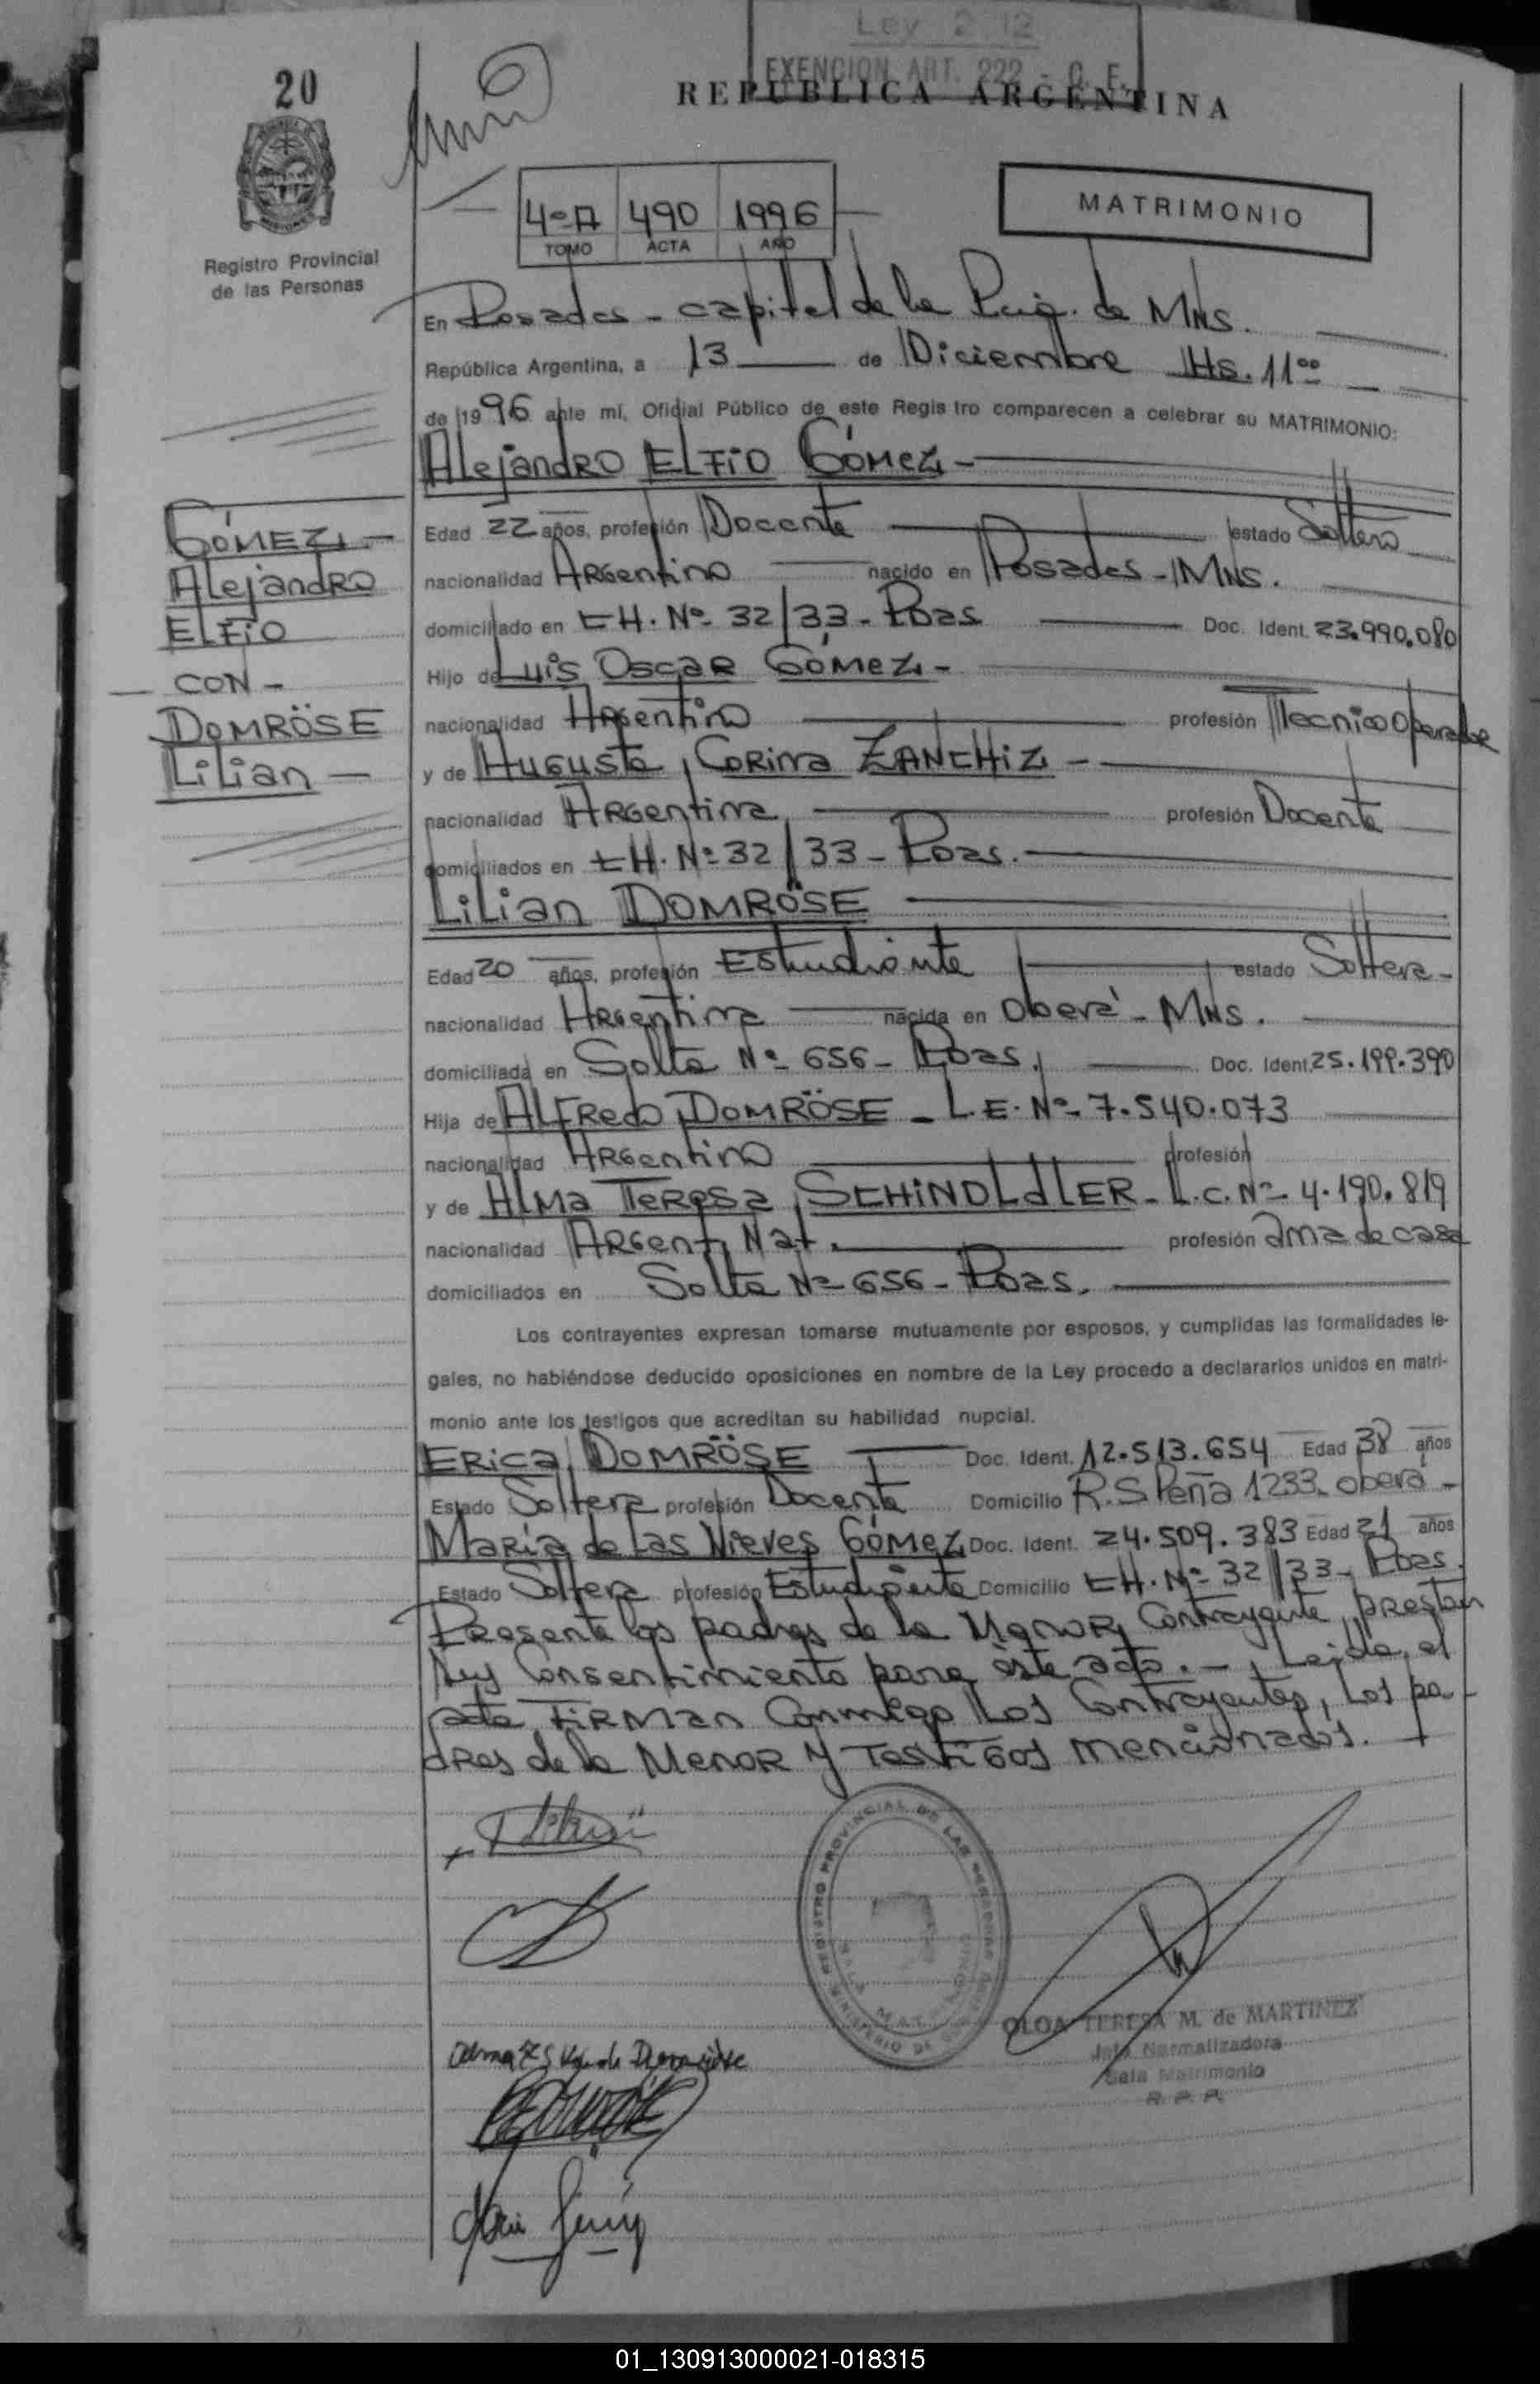 Ley 2 12
EXENCION ART. 222 - C. F.
20
REPUBLICA ARGENTINA
4º A 490 1996
TOMO ACTA AÑO
MATRIMONIO
Registro Provincial
de las Personas
En Posadas - capital de la de MNS.
República Argentina, a 13 de Diciembre Hs. 11ºº
de 1996 ante mí, Oficial Público de este Registro comparecen a celebrar su MATRIMONIO:
Alejandro ELFIO GÓMEZ -
GÓMEZ -
Alejandro
ELFIO
CON -
DOMRÖSE
Lilian -
Edad 22 años, profesión Docente estado Soltero
nacionalidad Argentino nacido en Posadas - MNS.
domiciliado en CH. Nº 32/33 - Pdas Doc. Ident. 23.990.080
Hijo de Luis Oscar GÓMEZ -
nacionalidad Argentino profesión Tecnico Operador
y de Augusta Corina ZANCHIZ -
nacionalidad Argentina profesión Docente
domiciliados en CH. Nº 32/33 - Pdas.
Lilian DOMRÖSE
Edad 20 años, profesión Estudiante estado Soltera -
nacionalidad Argentina nacida en Oberá - MNS.
domiciliada en Salta Nº 656 - Pdas. Doc. Ident. 25.199.390
Hija de Alfredo DOMRÖSE - L.E. Nº 7.540.073
nacionalidad Argentino profesión
y de Alma Teresa SCHINDLdLER - L.C. Nº 4.190.819
nacionalidad Argent. Nat. profesión ama de casa
domiciliados en Salta Nº 656 - Pdas.
Los contrayentes expresan tomarse mutuamente por esposos, y cumplidas las formalidades le-
gales, no habiéndose deducido oposiciones en nombre de la Ley procedo a declararlos unidos en matri-
monio ante los testigos que acreditan su habilidad nupcial.
Erica DOMRÖSE Doc. Ident. 12.513.654 Edad 38 años
Estado Soltera profesión Docente Domicilio R. S Peña 1233 - Oberá -
María de Las Nieves GÓMEZ Doc. Ident. 24.509.383 Edad 21 años
Estado Soltera profesión Estudiante Domicilio CH. Nº 32/33 - Pdas.
Presente los padres de la Menor Contrayente prestan
su Consentimiento para éste acto. - Leída el
acta, FIRMAN Conmigo Los Contrayentes, Los pa-
dres de la Menor y Testigos mencionados.
REGISTRO PROVINCIAL DE LAS PERSONAS
OLGA TERESA M. de MARTINEZ
Jefa Normalizadora
Sala Matrimonio
R. P. P.
01_130913000021-018315